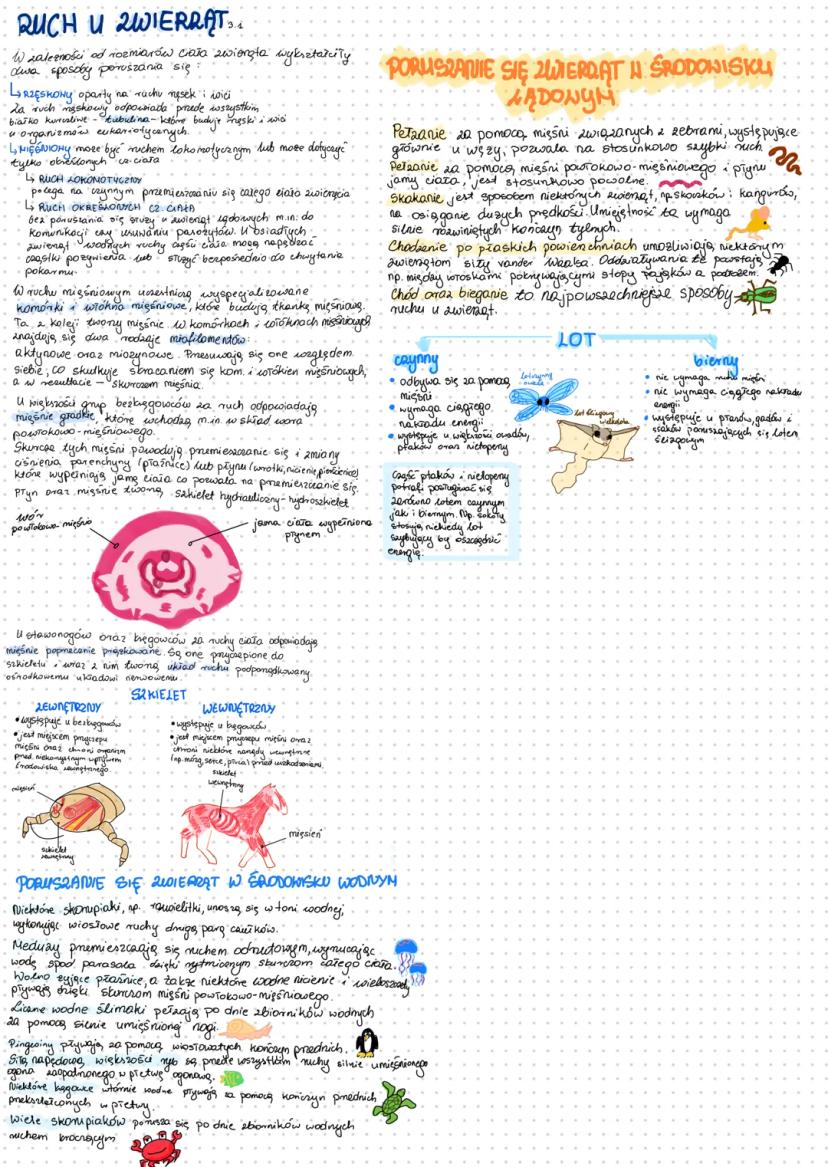 RUCH U ZWIERZĄT 3.1
W zależności od rozmiarów ciała zwierzęta wykształciły
dwa sposoby poruszania się:
↳ RZĘSKOWY oparty na ruchu rzęsek i wici
Za ruch rzęskowy odpowiada przede wszystkim
białko kurczliwe - tubulina - które buduje rzęski i wici
u organizmów eukariotycznych.
↳ MIĘŚNIOWY może być ruchem lokomotycznym lub może dotyczyć
tylko określonych cz. ciała
↳ RUCH LOKOMOTYCZNY
polega na czynnym przemieszczaniu się całego ciała zwierzęcia
↳ RUCH OKREŚLONYCH CZ. CIAŁA
bez poruszania się służy u zwierząt lądowych m.in. do
komunikacji czy usuwaniu pasożytów. U osiadłych
zwierząt wodnych ruchy części ciała mogą napędzać
cząstki pożywienia lub służyć bezpośrednio do chwytania
pokarmu.
W ruchu mięśniowym uczestniczą wyspecjalizowane
komórki i włókna mięśniowe, które budują tkankę mięśniową.
Ta z kolei tworzy mięśnie. W komórkach i włóknach mięśniowych
znajdują się dwa rodzaje miofilamentów:
aktynowe oraz miozynowe. Przesuwają się one względem
siebie, co skutkuje skracaniem się kom. i włókien mięśniowych,
a w rezultacie - skurczem mięśnia.
U większości grup bezkręgowców za ruch odpowiadają
mięśnie gładkie, które wchodzą m.in. w skład wora
powłokowo-mięśniowego.
Skurcze tych mięśni powodują przemieszczanie się i zmiany
ciśnienia parenchymy (płazińce) lub płynu (wrotki, nicienie, pierścienice)
które wypełniają jamę ciała co pozwala na przemieszczanie się.
Płyn oraz mięśnie tworzą szkielet hydrauliczny - hydroszkielet
wór
powłokowo-mięśnio
jama ciała wypełniona
płynem
U stawonogów oraz kręgowców za ruchy ciała odpowiadają
mięśnie poprzecznie prążkowane. Są one przyczepione do
szkieletu i wraz z nim tworzą układ ruchu podporządkowany
ośrodkowemu układowi nerwowemu.
SZKIELET
ZEWNĘTRZNY
• występuje u bezkręgowców
• jest miejscem przyczepu
mięśni oraz chroni organizm
przed niekorzystnym wpływem
środowiska zewnętrznego.
WEWNĘTRZNY
• występuje u kręgowców
• jest miejscem przyczepu mięśni oraz
chroni niektóre narządy wewnętrzne
(np. mózg, serce, płuca) przed uszkodzeniami.
mięsień
szkielet
zewnętrzny
szkielet
wewnętrzny
mięsień
PORUSZANIE SIĘ ZWIERZĄT W ŚRODOWISKU WODNYM
Niektóre skorupiaki, np. rozwielitki, unoszą się w toni wodnej,
wykonując wiosłowe ruchy drugą parą czułków.
Meduzy przemieszczają się ruchem odrzutowym, wyrzucając
wodę spod parasola dzięki rytmicznym skurczom całego ciała.
Wolno żyjące płazińce, a także niektóre wodne nicienie i wieloszczety
pływają dzięki skurczom mięśni powłokowo-mięśniowego.
Liczne wodne ślimaki pełzają po dnie zbiorników wodnych
za pomocą silnie umięśnionej nogi.
Pingwiny pływają za pomocą wiosłowatych kończyn przednich.
Siłą napędową większości ryb są przede wszystkim ruchy silnie umięśnionego
ogona zaopatrzonego w płetwę ogonową.
Niektóre kręgowce wtórnie wodne pływają za pomocą kończyn przednich
przekształconych w płetwy.
Wiele skorupiaków porusza się po dnie zbiorników wodnych
ruchem kroczącym
PORUSZANIE SIĘ ZWIERZĄT W ŚRODOWISKU
LĄDOWYM
Pełzanie za pomocą mięśni związanych z żebrami, występujące
głównie u węży, pozwala na stosunkowo szybki ruch
Pełzanie za pomocą mięśni powłokowo-mięśniowego i płynu
jamy ciała, jest stosunkowo powolne.
Skakanie jest sposobem niektórych zwierząt, np. skoczków i kangurów,
na osiąganie dużych prędkości. Umiejętność ta wymaga
silnie rozwiniętych kończyn tylnych.
Chodzenie po płaskich powierzchniach umożliwiają niektórym
zwierzętom siły vander Waalsa. Oddziaływania te powstają
np. między włoskami pokrywającymi stopy pająków a podłożem.
Chód oraz bieganie to najpowszechniejsze sposoby
ruchu u zwierząt.
LOT
czynny
• odbywa się za pomocą
mięśni
• wymaga ciągłego
nakładu energii
• występuje u większości owadów,
ptaków oraz nietoperzy
Lot czynny
owada
lot ślizgowy
bierny
• nie wymaga ruchu mięśni
• nie wymaga ciągłego nakładu
energii
• występuje u ptaków, gadów i
ssaków poruszających się lotem
ślizgowym
Część ptaków i nietoperzy
potrafi posługiwać się
zarówno lotem czynnym
jak i biernym. Np. sokoły
stosują niekiedy lot
szybujący by oszczędzić
energię.